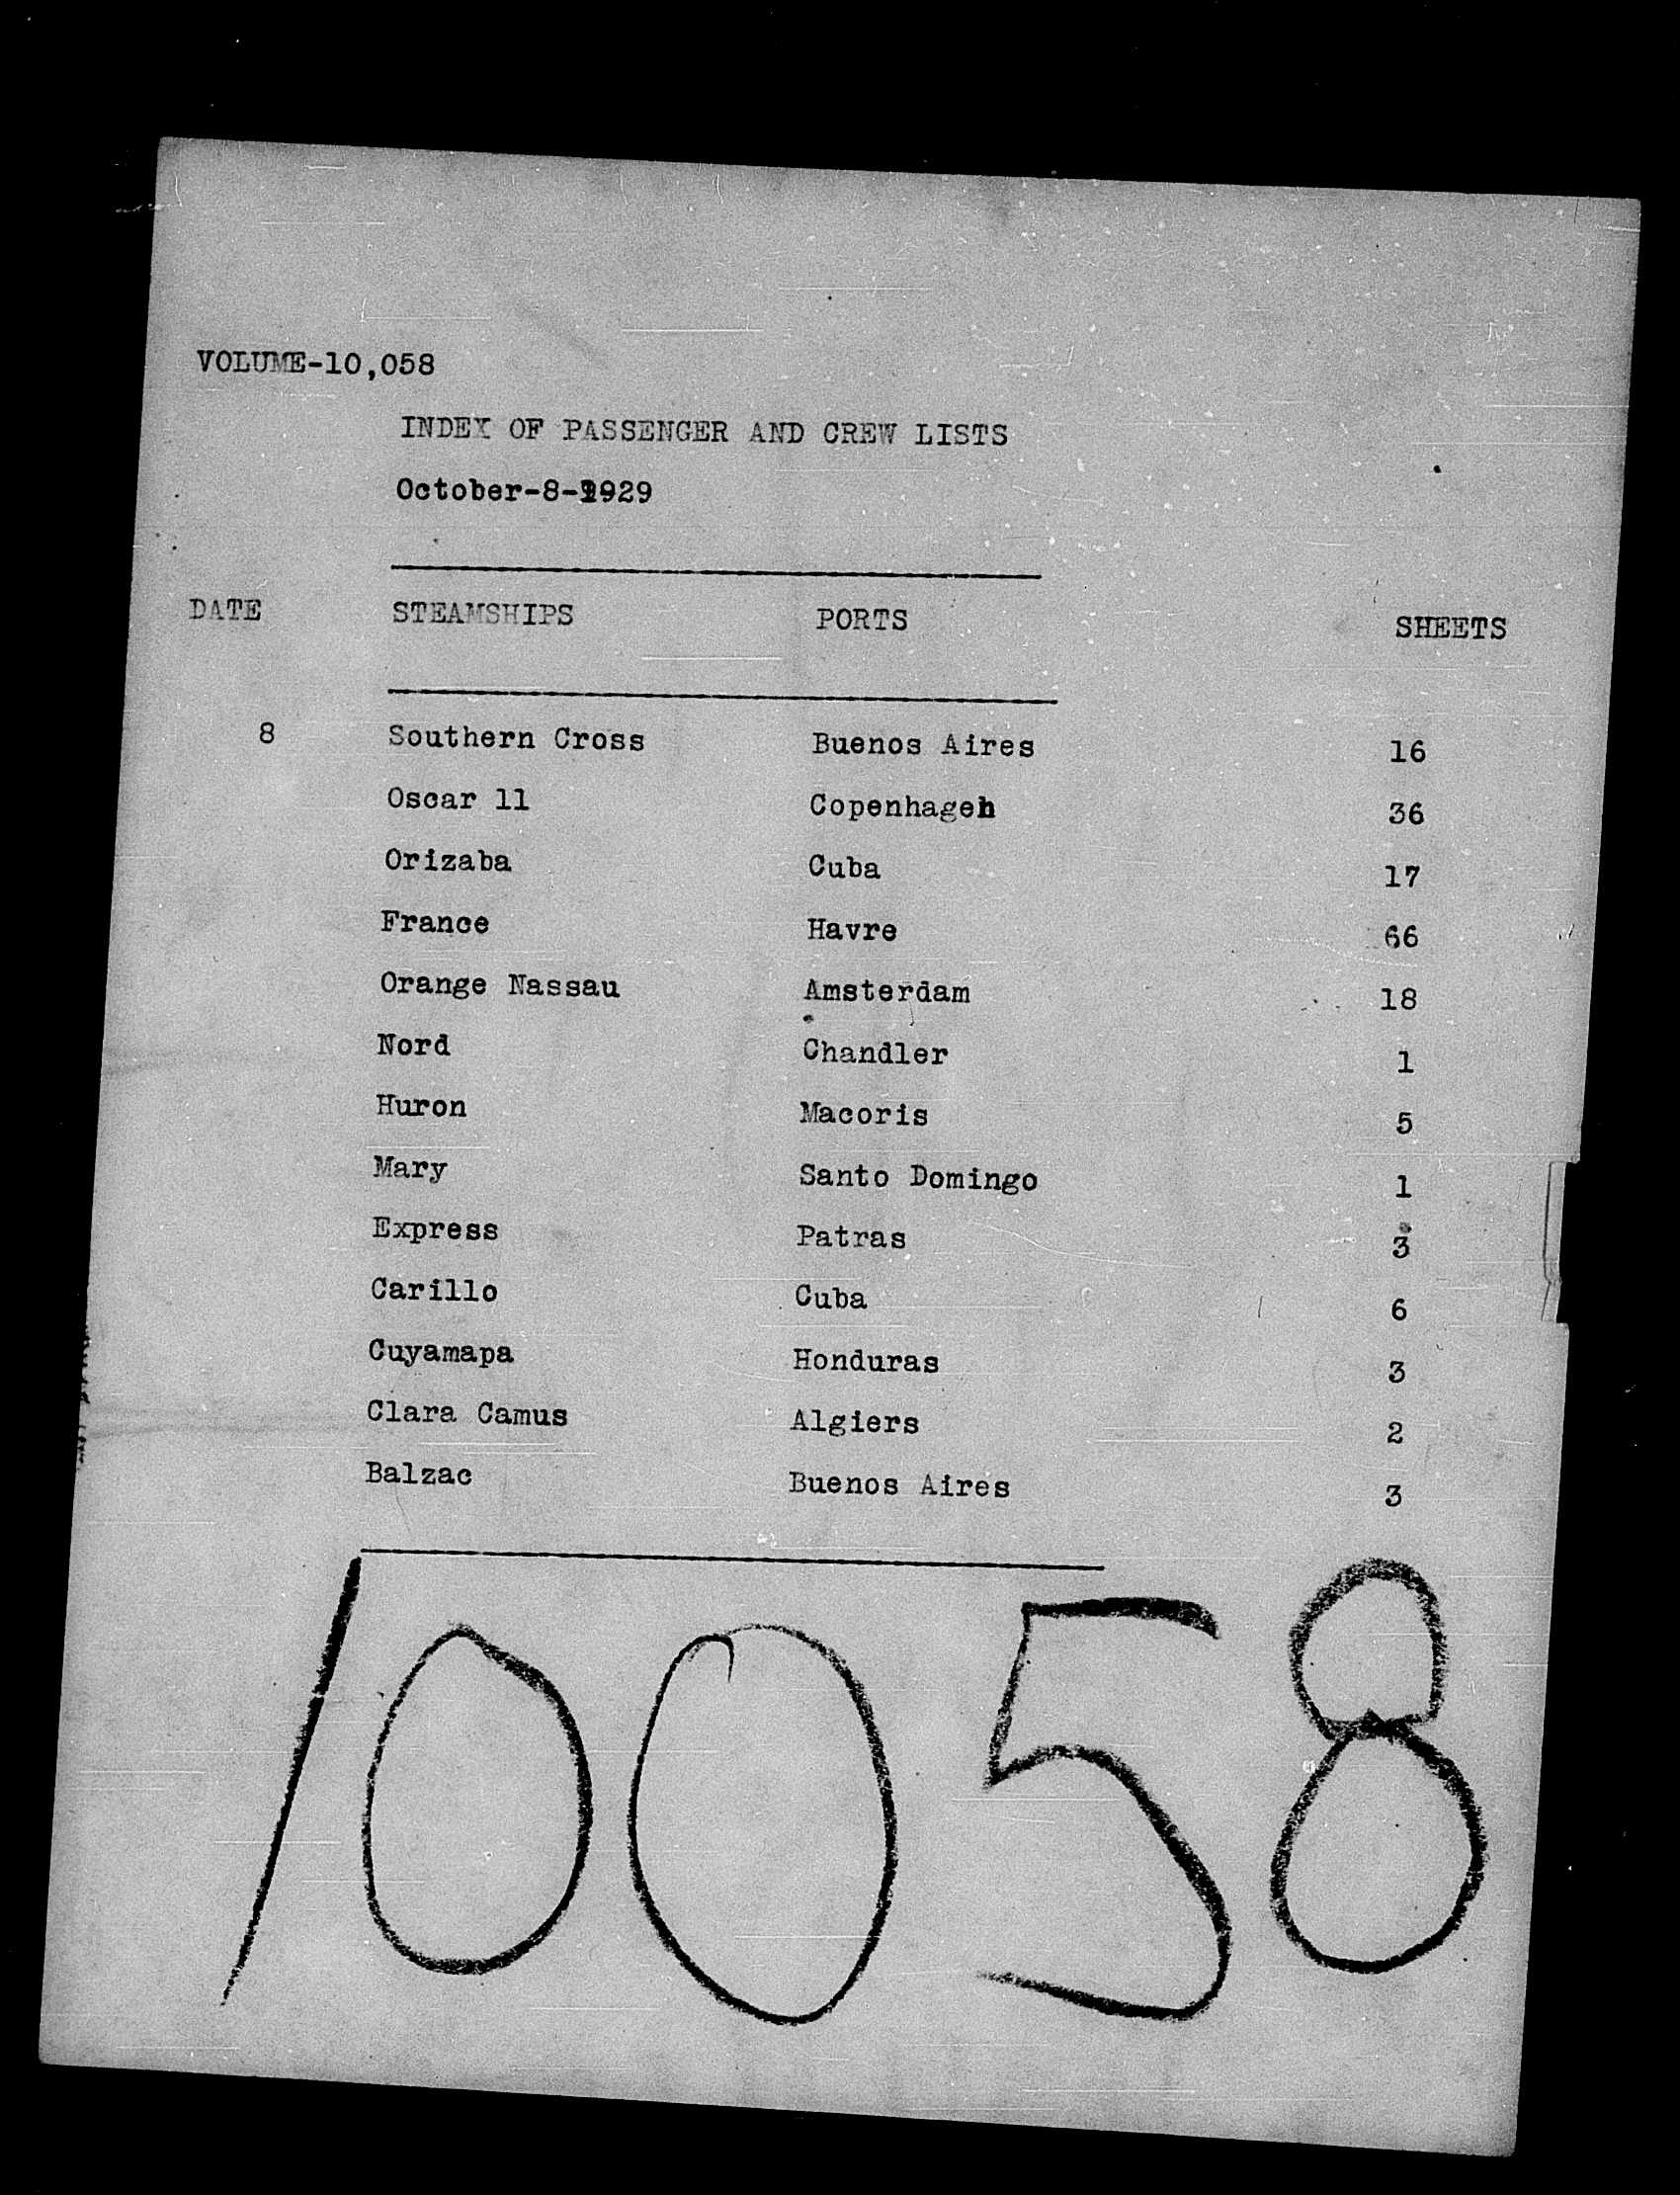 VOLUME-10,058
INDEX OF PASSENGER AND CREW LISTS
October-8-1929
DATE STEAMSHIPS PORTS SHEETS
8 Southern Cross Buenos Aires 16
Oscar 11 Copenhagen 36
Orizaba Cuba 17
France Havre 66
Orange Nassau Amsterdam 18
Nord Chandler 1
Huron Macoris 5
Mary Santo Domingo 1
Express Patras 3
Carillo Cuba 6
Cuyamapa Honduras 3
Clara Camus Algiers 2
Balzac Buenos Aires 3
10058